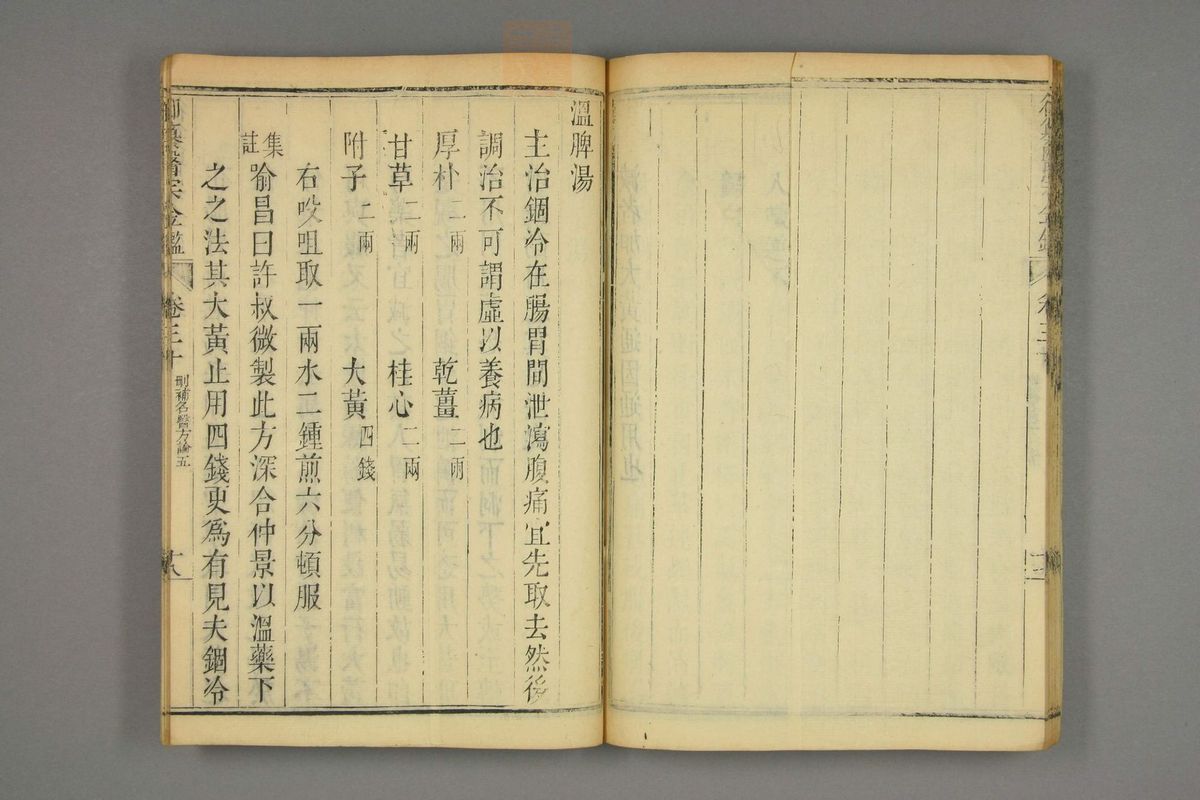 溫脾湯
主治錮冷在腸胃間泄瀉腹痛宜先取去然後
調治不可謂虛以養病也
厚朴二兩 乾薑二兩
甘草二兩 桂心二兩
附子二兩 大黃四錢
右㕮咀取一兩水二鍾煎六分頓服
集註 喻昌曰許叔微製此方深合仲景以溫藥下
之之法其大黃止用四錢更為有見夫錮冷
御纂醫宗金鑑 卷三十 刪補名醫方論五 十八